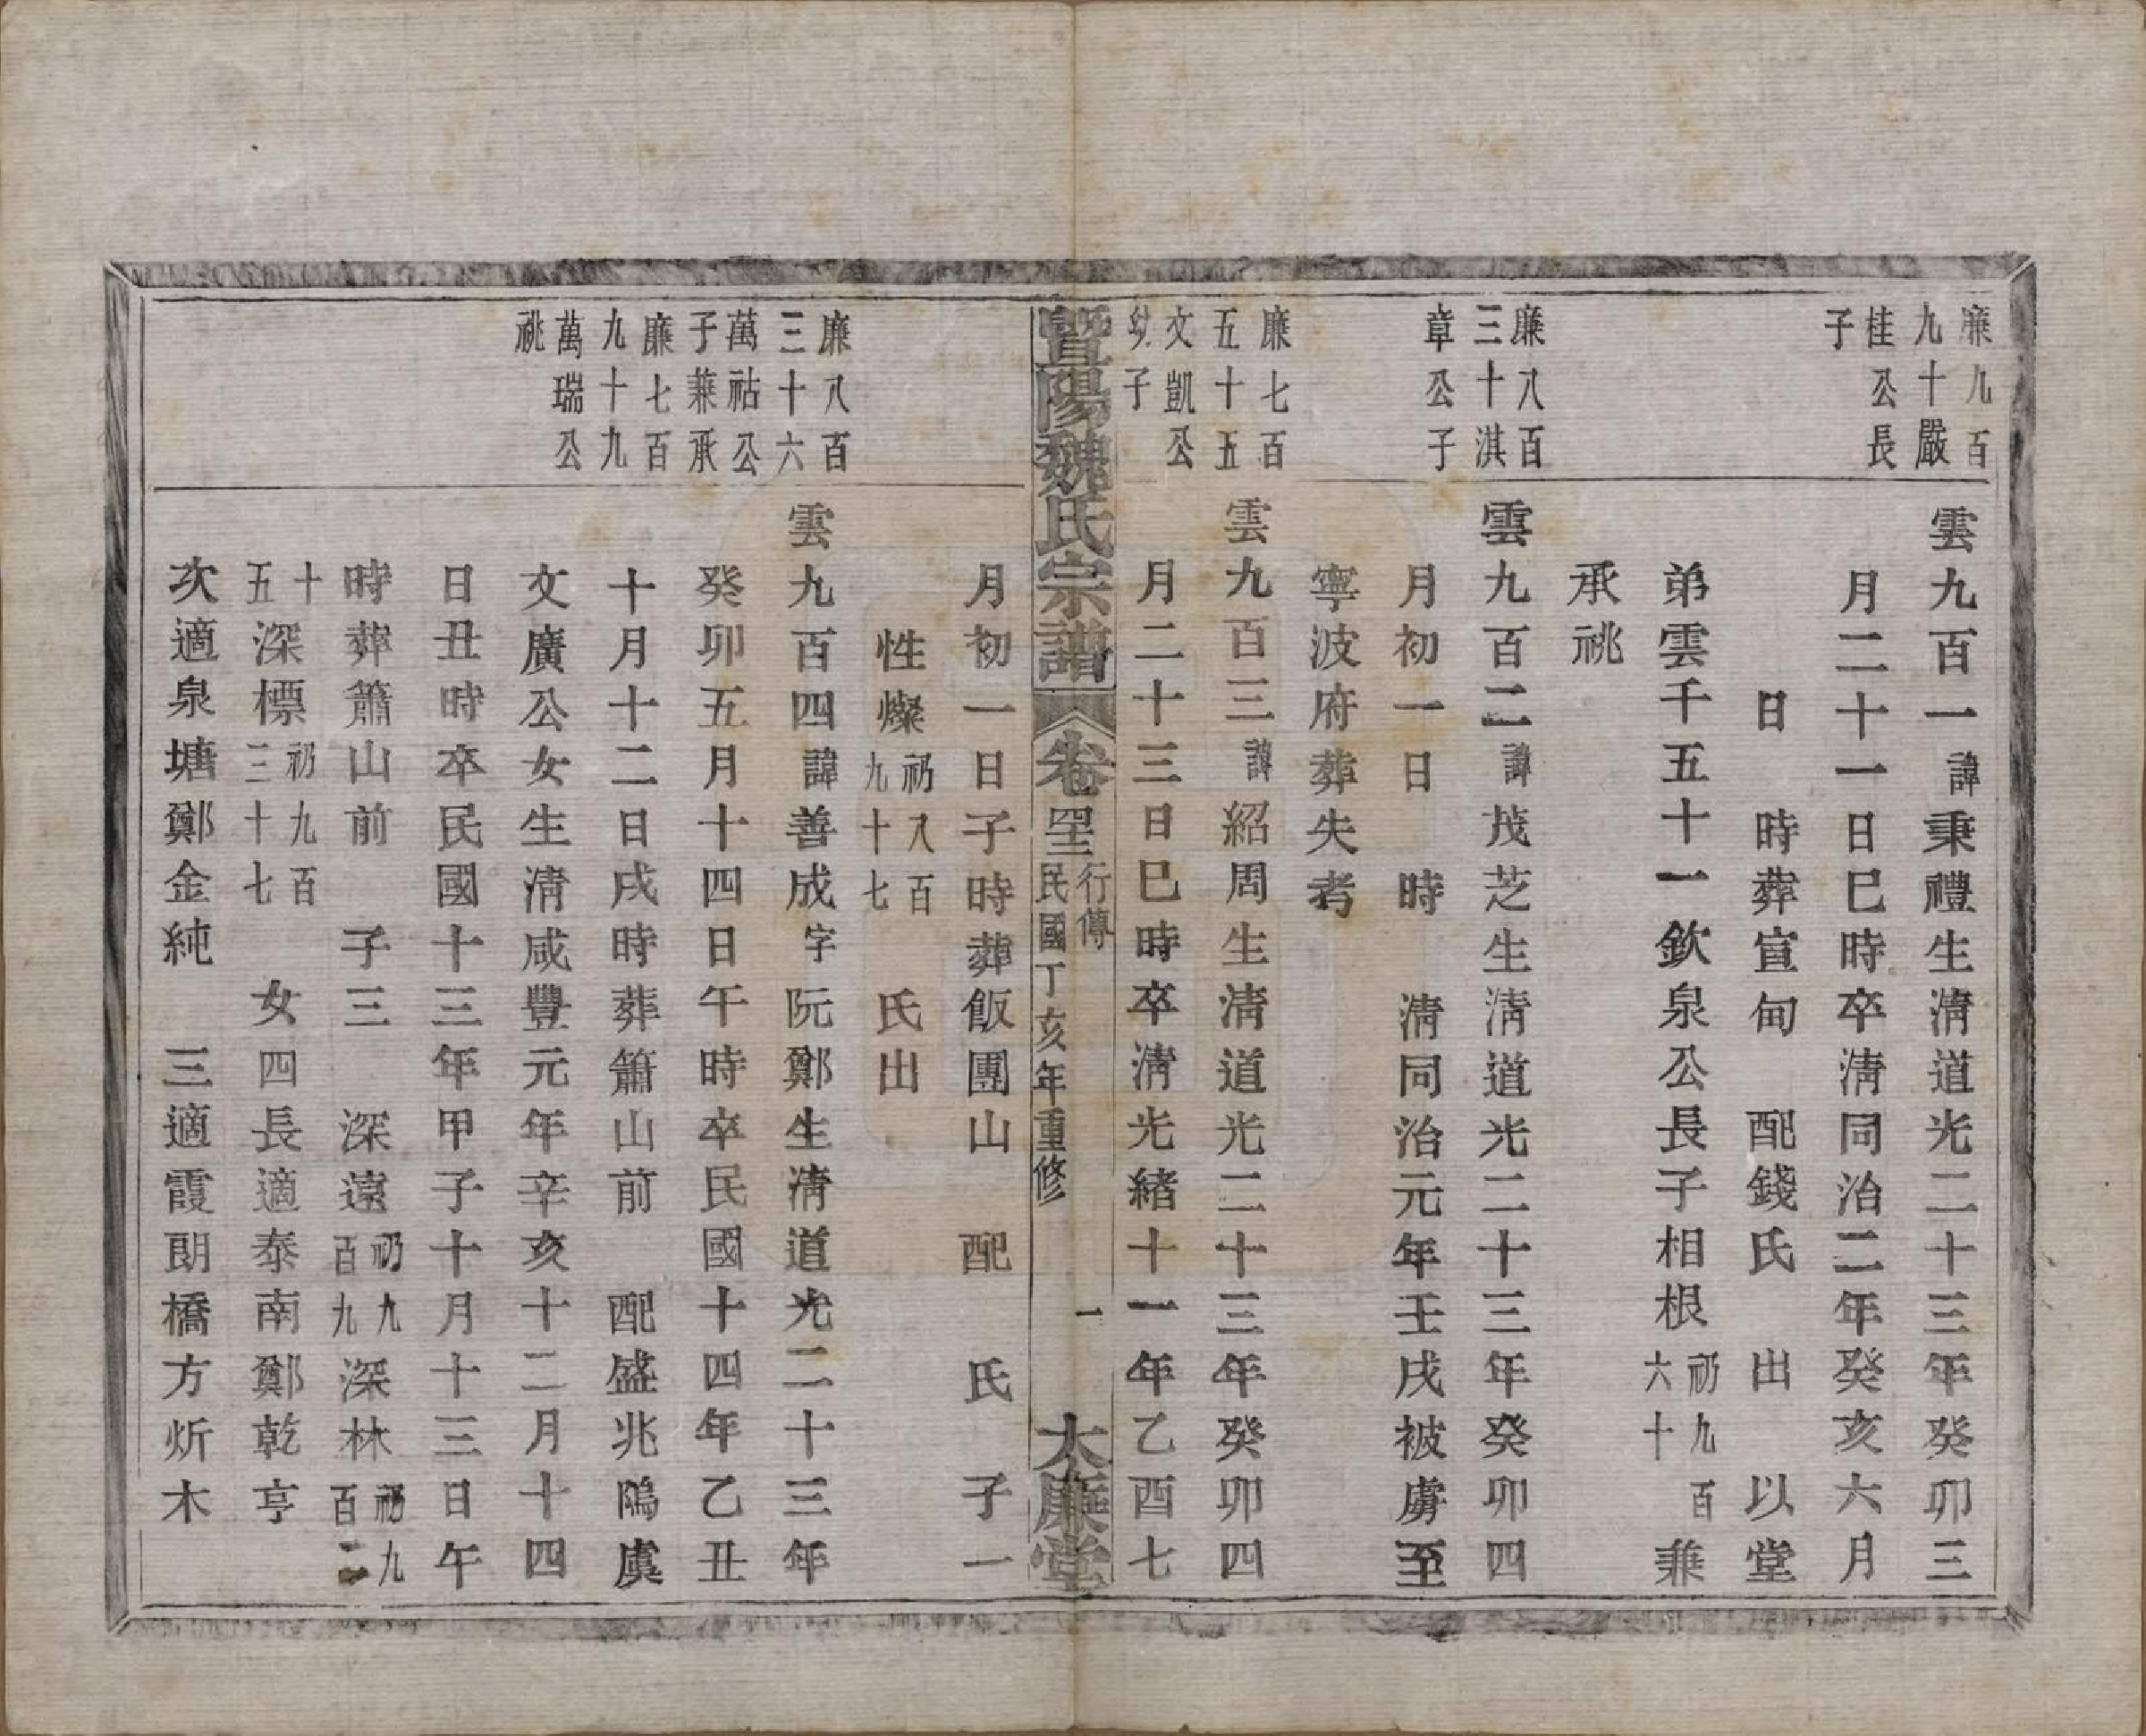 廉九百
九十嚴
桂公長
子
雲九百一諱秉禮生淸道光二十三年癸卯三
月二十一日巳時卒淸同治二年癸亥六月
日 時葬宣甸 配錢氏 出 以堂
弟雲千五十一欽泉公長子相根礽九百六十兼
承祧
廉八百
三十淇
章公子
雲九百二諱茂芝生淸道光二十三年癸卯四
月初一日 時 淸同治元年壬戌被虜至
寧波府葬失考
廉七百
五十五
文凱公
幼子
雲九百三諱紹周生淸道光二十三年癸卯四
月二十三日巳時卒淸光緒十一年乙酉七
暨陽魏氏宗譜 卷四十三 行傳 民國丁亥年重修 一 太廉堂
月初一日子時葬飯團山 配 氏 子一
性燦礽八百九十七 氏出
廉八百
三十六
萬祜公
子兼承
廉七百
九十九
萬瑞公
祧
雲九百四諱善成字阮鄭生淸道光二十三年
癸卯五月十四日午時卒民國十四年乙丑
十月十二日戌時葬簫山前 配盛兆隝虞
文廣公女生淸咸豐元年辛亥十二月十四
日丑時卒民國十三年甲子十月十三日午
時葬簫山前 子三 深遠礽九百九深林礽九百二
十五深標礽九百三十七 女四長適泰南鄭乾亨
次適泉塘鄭金純 三適霞朗橋方炘木